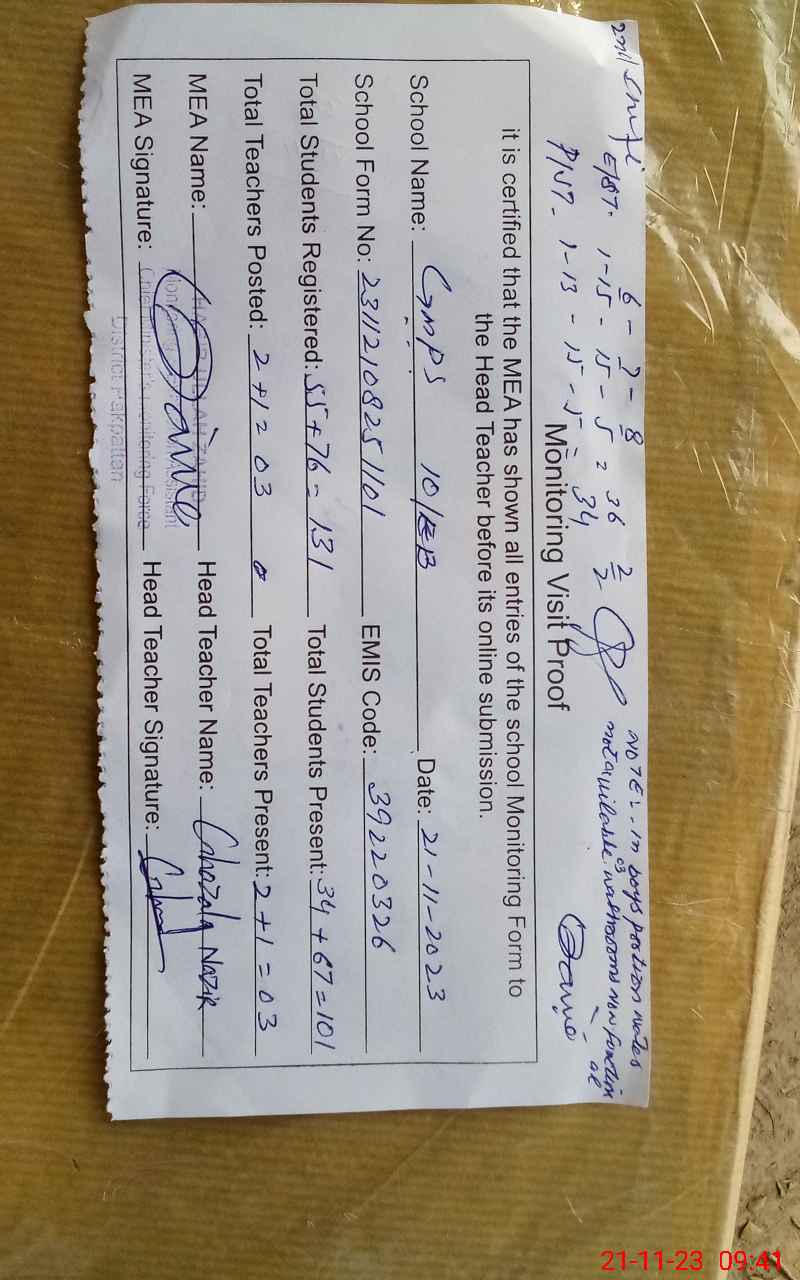 2nd Shift
6 - 7 - 8
E/ST. 1-15 - 15 - 5 = 36
P/ST. 1-13 - 15 - 5 = 34
2/2
NOTE:- in boys portion water
not available. 03 washrooms non function
al
Monitoring Visit Proof
it is certified that the MEA has shown all entries of the school Monitoring Form to
the Head Teacher before its online submission.
School Name: GMPS 10/EB Date: 21-11-2023
School Form No: 23112108251101 EMIS Code: 39220326
Total Students Registered: 55+76=131 Total Students Present: 34+67=101
Total Teachers Posted: 2+1=03 Total Teachers Present: 2+1=03
MEA Name: Head Teacher Name: Ghazala Nazir
MEA Signature: Head Teacher Signature:
Chief Minister's Monitoring Force
District Pakpattan
21-11-23 09:41